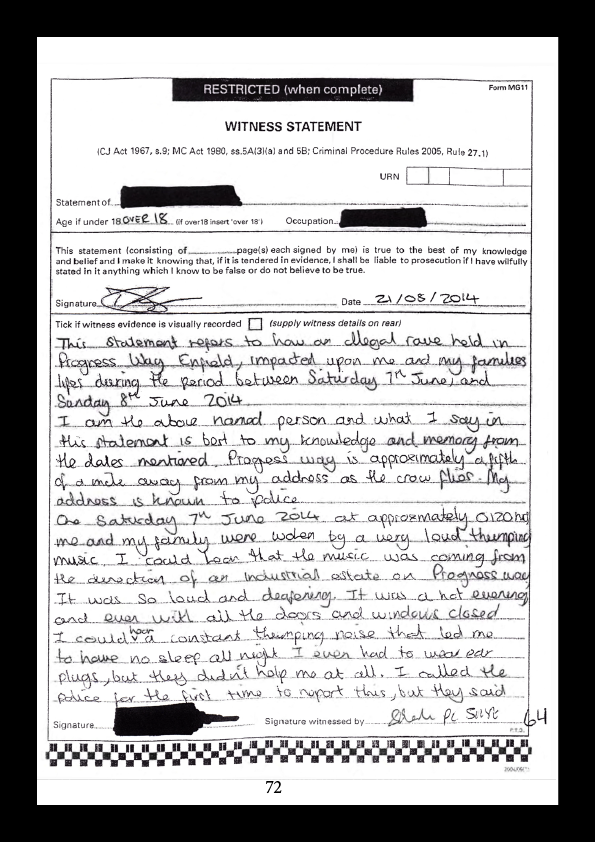 RESTRICTED (when complete)
Form MG11
WITNESS STATEMENT
(CJ Act 1967, s.9; MC Act 1980, ss.5A(3)(a) and 5B; Criminal Procedure Rules 2005, Rule 27.1)
URN
Statement of
Age if under 18 OVER 18 (if over 18 insert 'over 18') Occupation
This statement (consisting of page(s) each signed by me) is true to the best of my knowledge
and belief and I make it knowing that, if it is tendered in evidence, I shall be liable to prosecution if I have wilfully
stated in it anything which I know to be false or do not believe to be true.
Signature Date 21/08/2014
Tick if witness evidence is visually recorded (supply witness details on rear)
This statement refers to how an illegal rave held in
Progress Way Enfield, impacted upon me and my families
lifes during the period between Saturday 7th June, and
Sunday 8th June 2014.
I am the above named person and what I say in
this statement is best to my knowledge and memory from
the dates mentioned. Progress way is approximately a fifth
of a mile away from my address as the crow flies. My
address is known to police
On Saturday 7th June 2014 at approximately 0120hrs
me and my family were woken by a very loud thumping
music. I could hear that the music was coming from
the direction of an industrial estate on Progress way
It was so loud and deafening. It was a hot evening
and even with all the doors and windows closed
I could hear a constant thumping noise that led me
to have no sleep all night I even had to wear ear
plugs, but they didn't help me at all. I called the
police for the first time to report this, but they said
Signature Signature witnessed by PC
64
P.T.O.
72